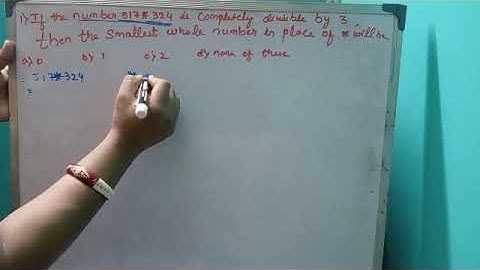 1) If the number 517*324 is completely divisible by 3,
then the smallest whole number in place of * will be
a) 0 b) 1 c) 2 d) none of these
= 517*324
=